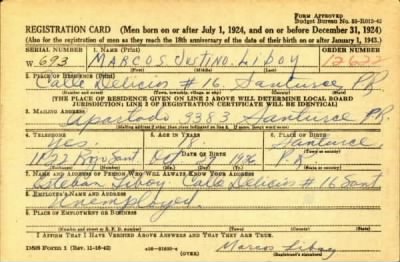 Form Approved
Budget Bureau No. 33-R013-42
REGISTRATION CARD—(Men born on or after July 1, 1924, and on or before December 31, 1924)
(Also for the registration of men as they reach the 18th anniversary of the date of their birth on or after January 1, 1943.)
SERIAL NUMBER 1. NAME (Print) ORDER NUMBER
W 693 MARCOS JUSTINO LIBOY 12622
(First) (Middle) (Last)
2. PLACE OF RESIDENCE (Print)
Calle Delicias #16 Santurce P.R.
[THE PLACE OF RESIDENCE GIVEN ON LINE 2 ABOVE WILL DETERMINE LOCAL BOARD
JURISDICTION; LINE 2 OF REGISTRATION CERTIFICATE WILL BE IDENTICAL]
3. MAILING ADDRESS
Apartado 3383 Santurce P.R.
[Mailing address if other than place indicated on line 2. If same, insert word same]
4. TELEPHONE 5. AGE IN YEARS 6. PLACE OF BIRTH
Yes. 18 Santurce
DATE OF BIRTH
Oct P.R.
7. NAME AND ADDRESS OF PERSON WHO WILL ALWAYS KNOW YOUR ADDRESS
Esteban Liboy Calle Delicias #16 Sant
8. EMPLOYER'S NAME AND ADDRESS
Unemployed.
9. PLACE OF EMPLOYMENT OR BUSINESS
I AFFIRM THAT I HAVE VERIFIED ABOVE ANSWERS AND THAT THEY ARE TRUE.
DSS Form 1 (Rev. 11-16-42) (OVER) Marcos Liboy
(Registrant's signature)